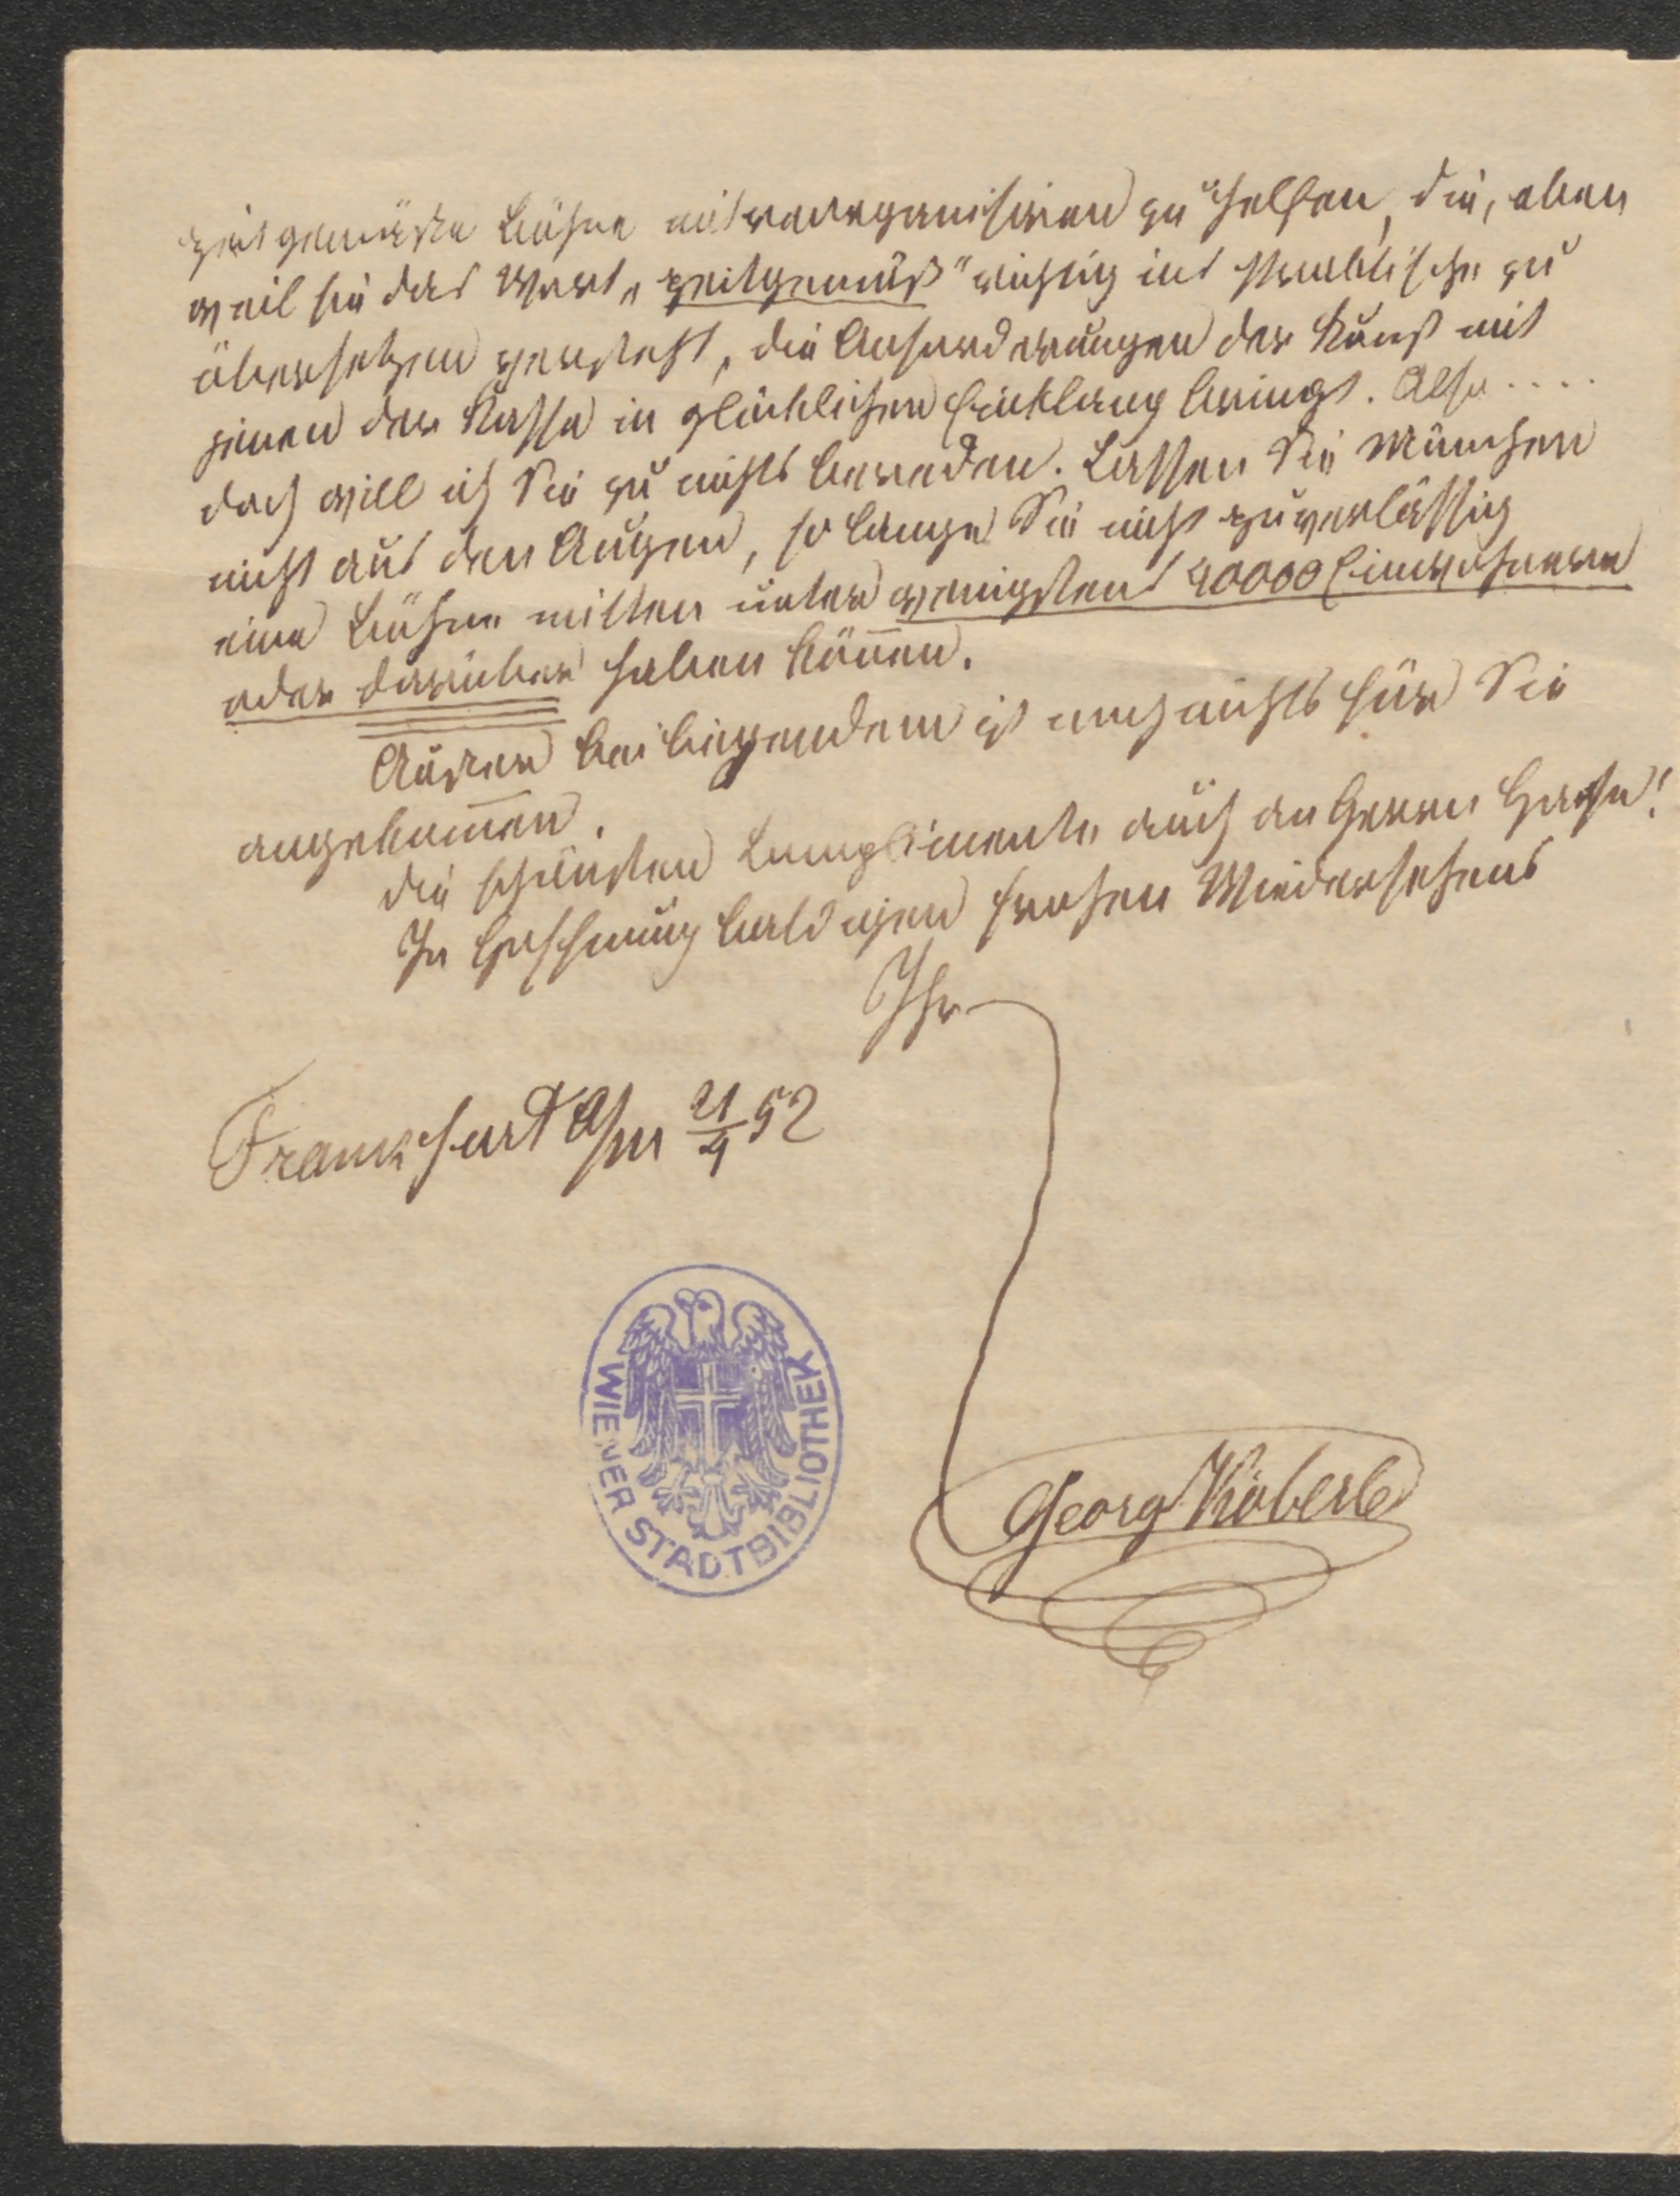 zeitgemäße Bühne mit reorganisiren zu helfen, die, eben
weil sie das Wort „zeitgemäß" richtig ins Praktische zu
übersetzen versteht, die Anforderungen der Kunst mit
jenen der Kasse in glücklichen Einklang bringt. Also....
doch will ich Sie zu nichts bereden. Lassen Sie München
nicht aus den Augen, so lange Sie nicht zuverlässig
eine Bühne mitten unter wenigstens 40000 Einwohnern
oder darüber haben können.
Außer beiliegendem ist noch nichts für Sie
angekommen.
Die schönsten Complimente auch an Herrn
In Hoffnung baldigen frohen Wiedersehens
Ihr
Frankfurt a/m 21/4 52
Georg Köberle
WIENER STADTBIBLIOTHEK